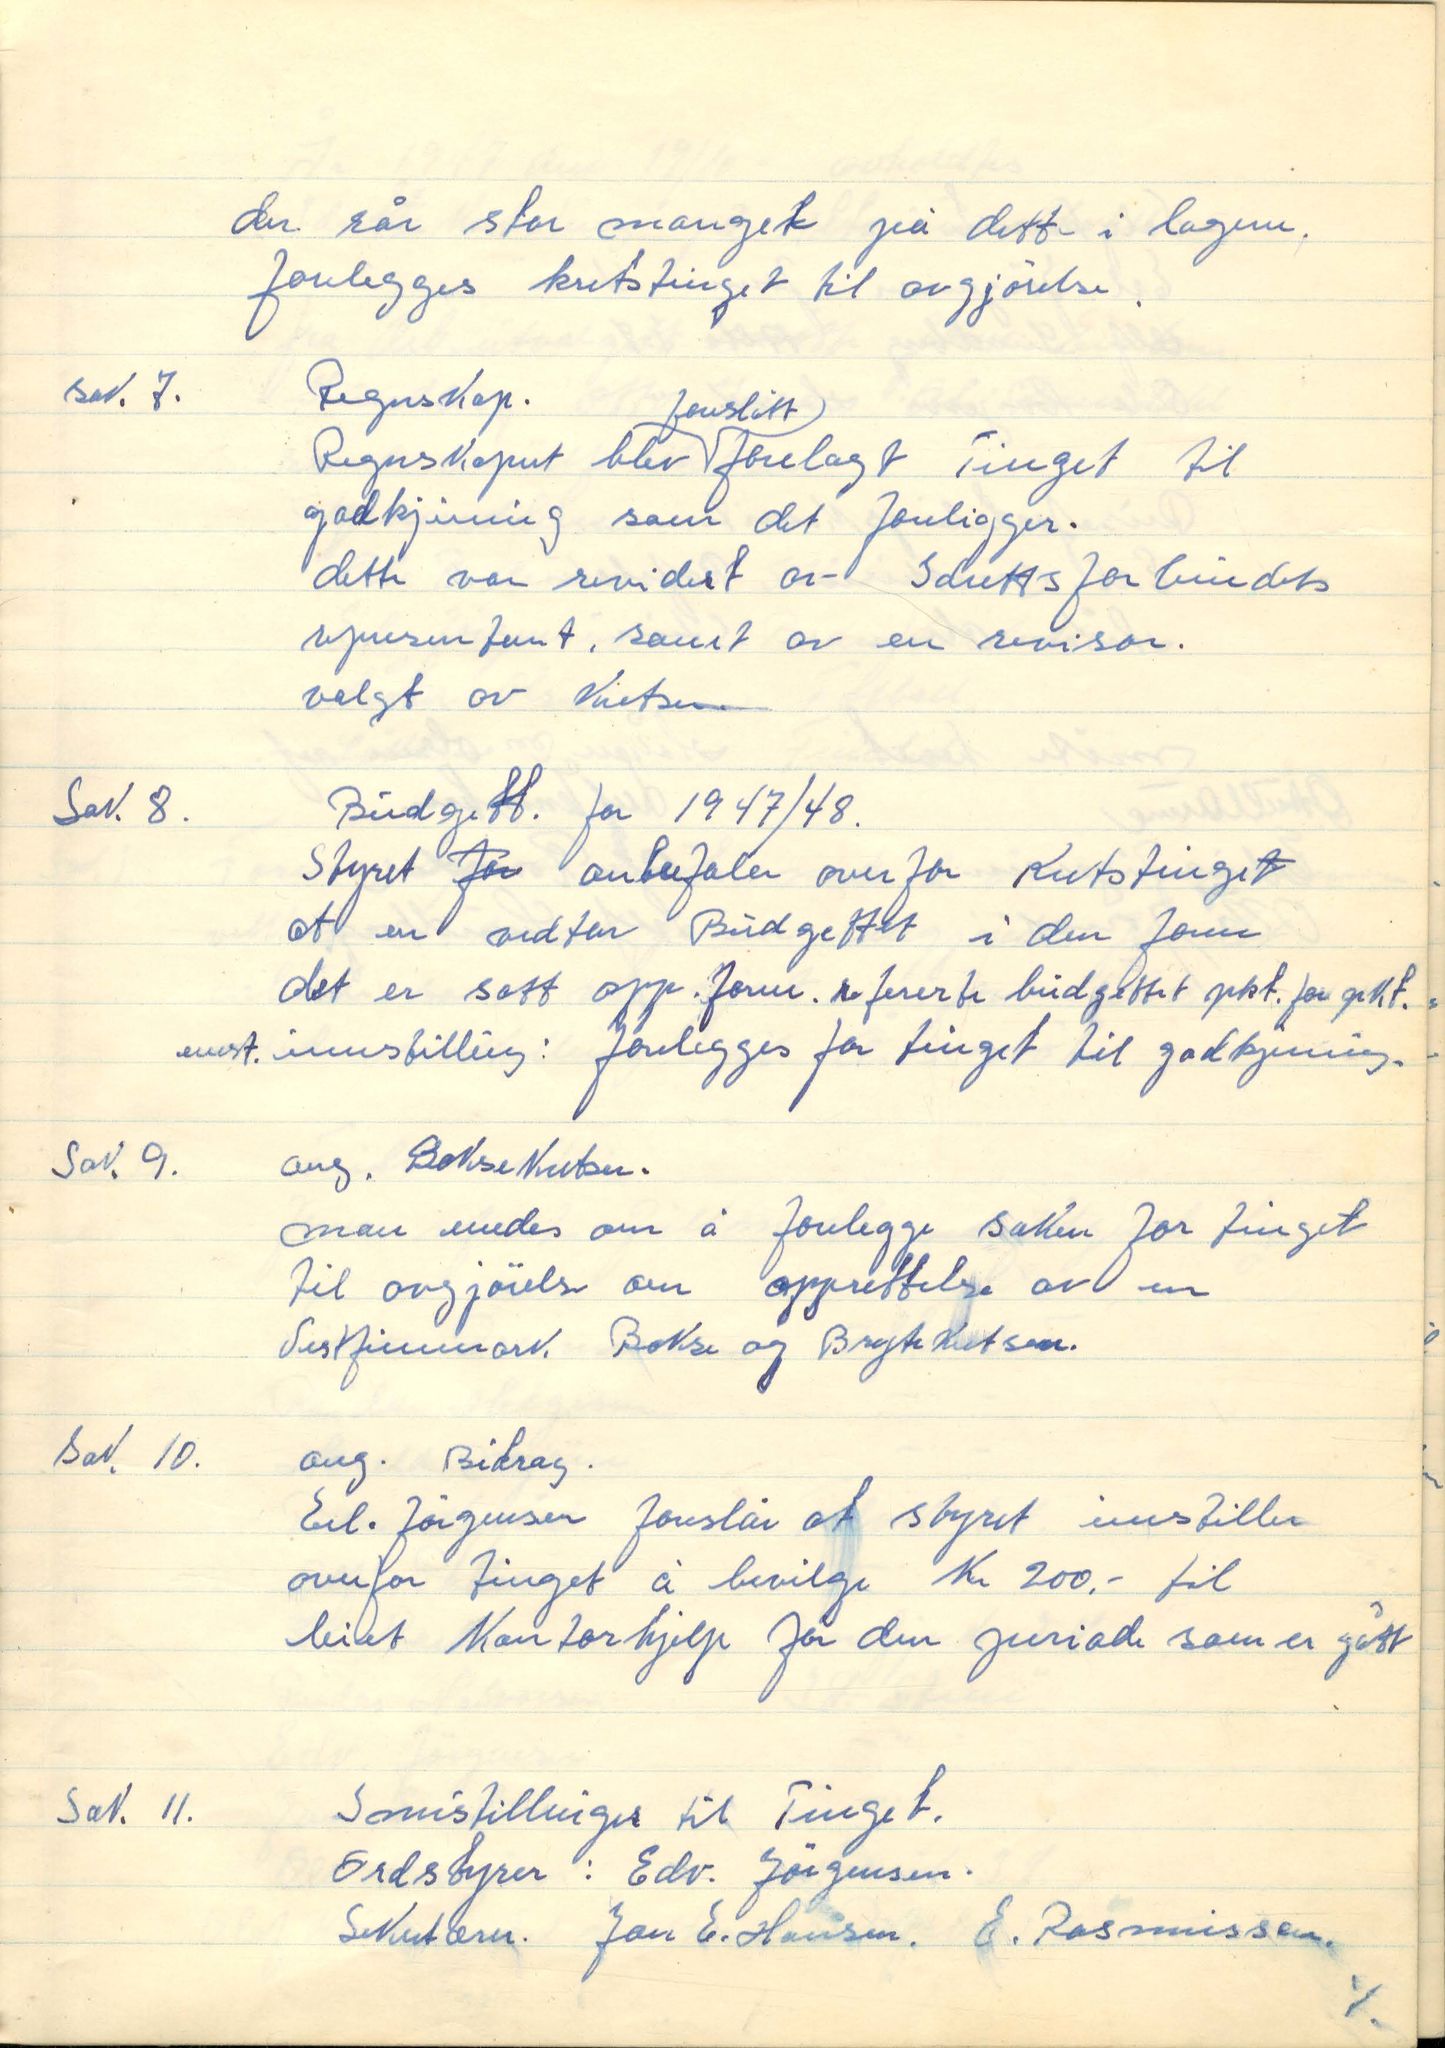 der rår stor mangel på dette i lagene.
forelegges kretstinget til avgjörelse.
sak. 7. Regnskap.
foreslått
Regnskapet blev forelagt Tinget til
godkjenning som det foreligger.
dette var revidert av Idrettsforbundets
representant, samt av en revisor.
valgt av Kretsen
Sak. 8. Büdgett. for 1947/48.
Styret for anbefaler overfor Kretstinget
at en vedtar Büdgettet i den form
det er satt opp. form. refererte büdgettet pkt. for pkt.
enst. innstilling: forelegges for tinget til godkjenning.
Sak. 9. ang. Boksekretsen.
man enedes om å forelegge saken for tinget
til avgjörelse om opprettelse av en
Vestfinnmark. Bokse og Brytekretsen.
Sak. 10. ang. Bidrag.
Erl. Jörgensen foreslår at styret innstiller
overfor tinget å bevilge Kr 200.- til
leiet Kontorhjelp for den periode som er gått
Sak. 11. Innstillinger til Tinget.
Ordstyrer: Edv. Jörgensen.
Sekretærer. Jan E. Hansen. E. Rasmussen.